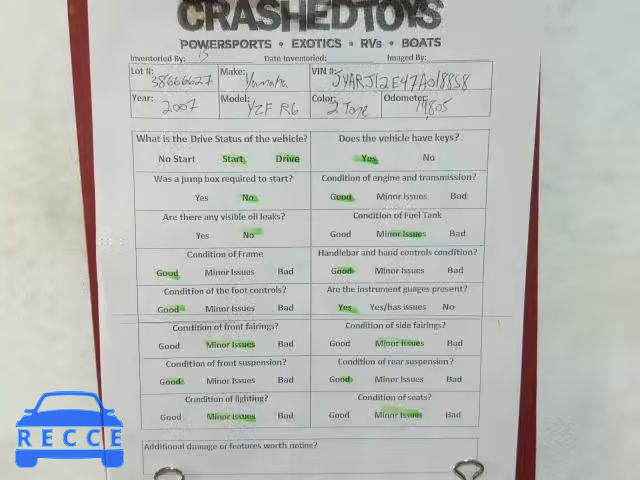 CRASHEDTOYS
POWERSPORTS • EXOTICS • RVs • BOATS
Inventoried By: Date Inventoried: Imaged By:
Lot #: 38666627 Make: Yamaha VIN #: JYARJ12E47A018858
Year: 2007 Model: YZF R6 Color: 2 Tone Odometer: 19,805
What is the Drive Status of the vehicle? Does the vehicle have keys?
No Start Start Drive Yes No
Was a jump box required to start? Condition of engine and transmission?
Yes No Good Minor Issues Bad
Are there any visible oil leaks? Condition of Fuel Tank
Yes No Good Minor Issues Bad
Condition of Frame Handlebar and hand controls condition?
Good Minor Issues Bad Good Minor Issues Bad
Condition of the foot controls? Are the instrument guages present?
Good Minor Issues Bad Yes Yes/has issues No
Condition of front fairings? Condition of side fairings?
Good Minor Issues Bad Good Minor Issues Bad
Condition of front suspension? Condition of rear suspension?
Good Minor Issues Bad Good Minor Issues Bad
Condition of lighting? Condition of seats?
Good Minor Issues Bad Good Minor Issues Bad
Additional damage or features worth notice?
RECCE